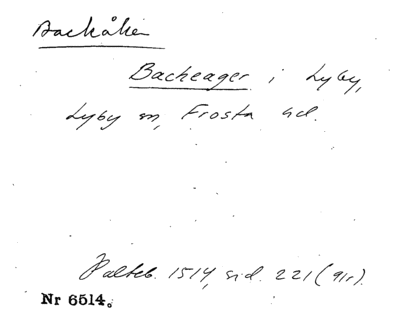 Backåker
Bacheager i Lyby,
Lyby sn, Frosta hd.
Palteb. 1514, sid. 221 (91r).
Nr 6514.